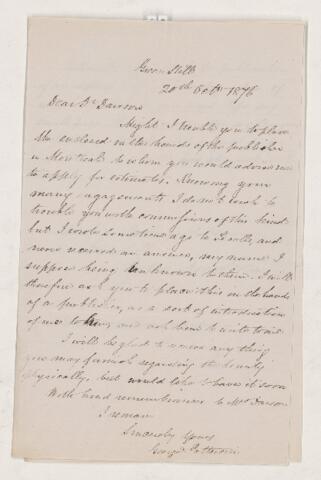 Green Hill
20th Octr 1876
Dear Dr Dawson
Might I trouble you to place
the enclosed in the hands of the publisher
in Montreal to whom you would advise me
to apply for estimates. Knowing your
many engagements I don't wish to
trouble you with commissions of this kind
but I wrote some time ago to Lovells, and
never received an answer, my name I
suppose being unknown to them. I will
therefore ask you to place this in the hands
of a publisher, as a sort of introduction
of me to him, and ask him to write to me.
I will be glad to receive any thing
you may furnish regarding the County
physically, but would like to have it soon
With kind remembrances to Mrs Dawson
I remain
Sincerely Yours
George Patterson